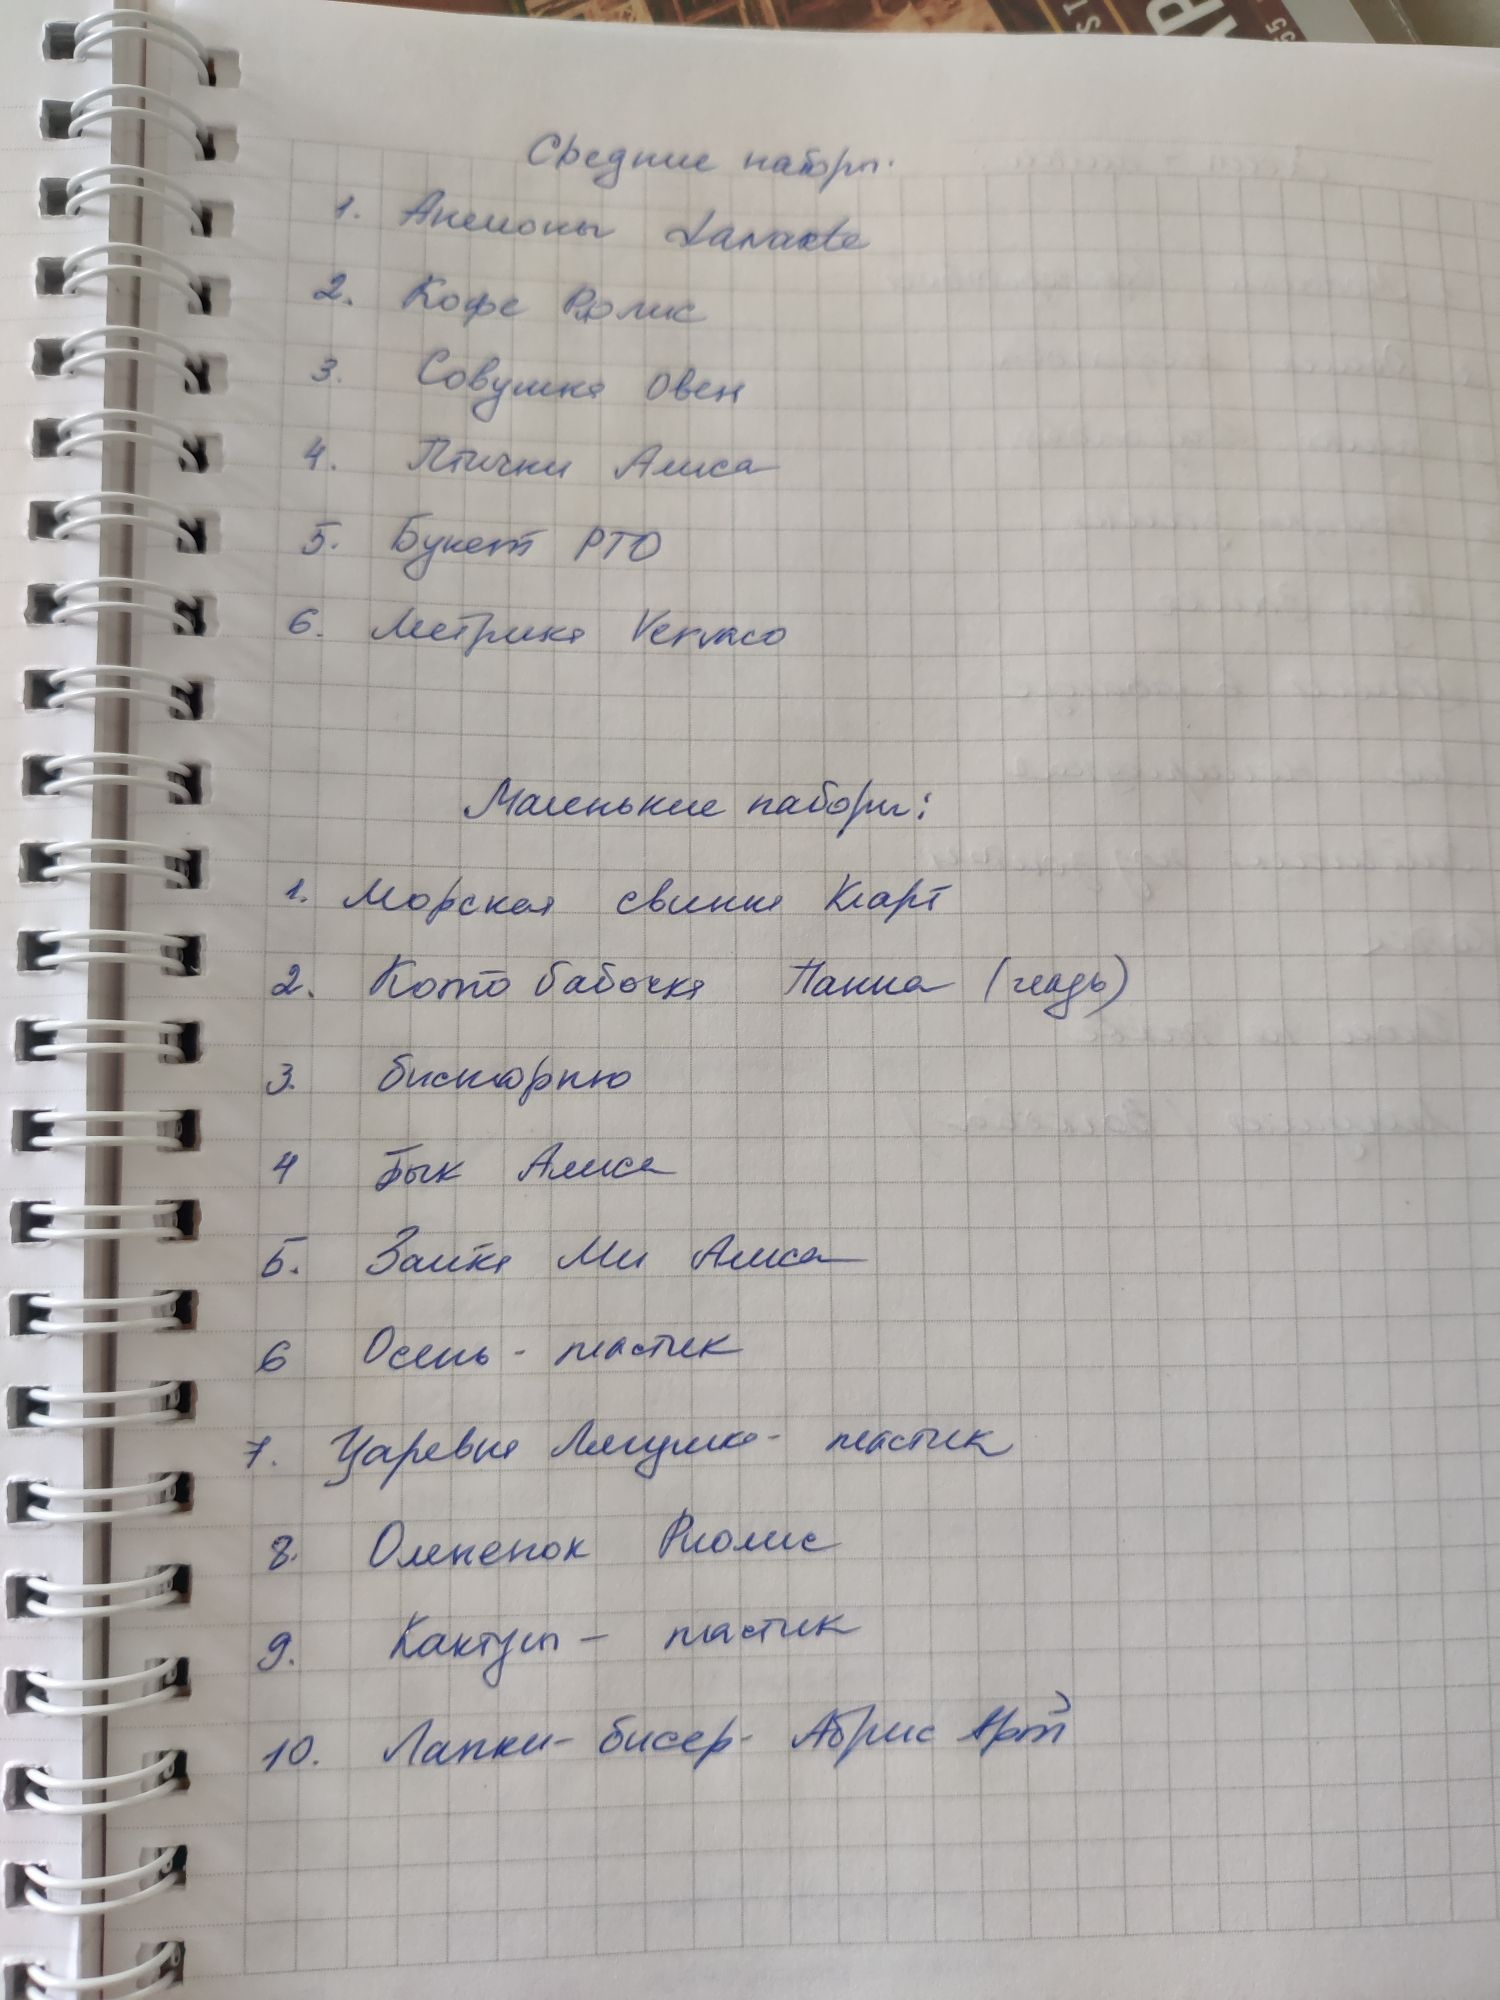 Средние наборы.
1. Анемоны Lanarte
2. Кофе Риолис
3. Совушка Овен
4. Птички Алиса
5. Букет РТО
6. Метрика Vervaco
Маленькие наборы:
1. Морская свинка Кларт
2. Кото бабочка Панна (гладь)
3. бискорню
4 Бык Алиса
5. Зайка Ми Алиса
6 Осень - пластик
7. Царевна Лягушка - пластик
8. Олененок Риолис
9. Кактусы - пластик
10. Лапки - бисер - Абрис Арт